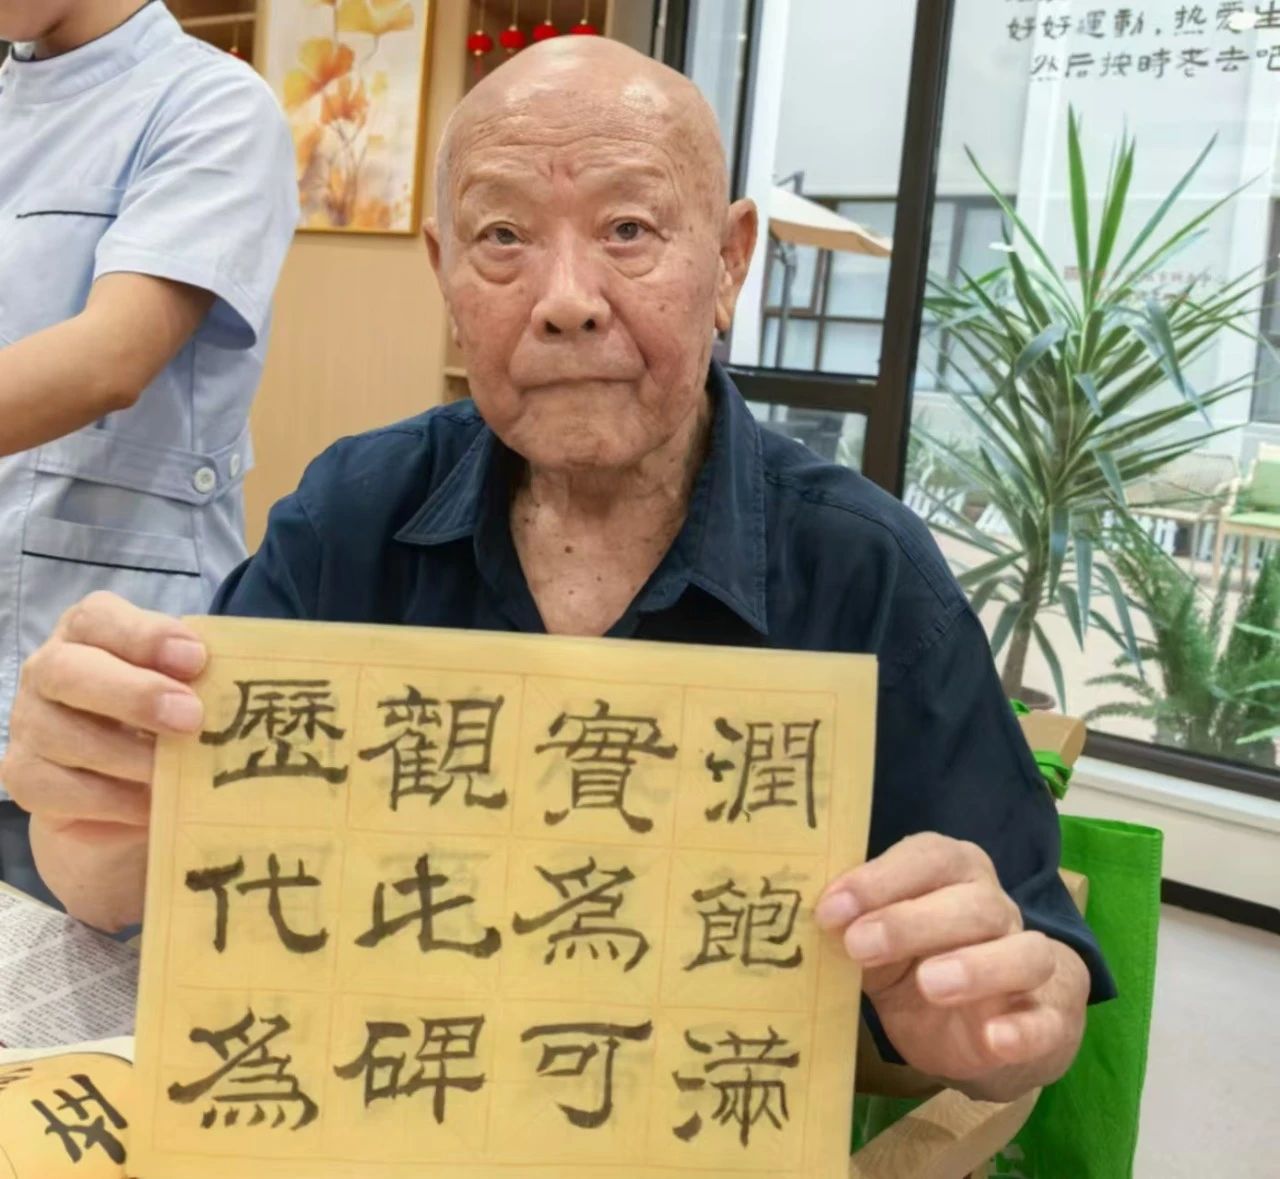 好好運動,热爱生
然后按時老去吧
潤飽滿
實爲可
觀此碑
歷代爲